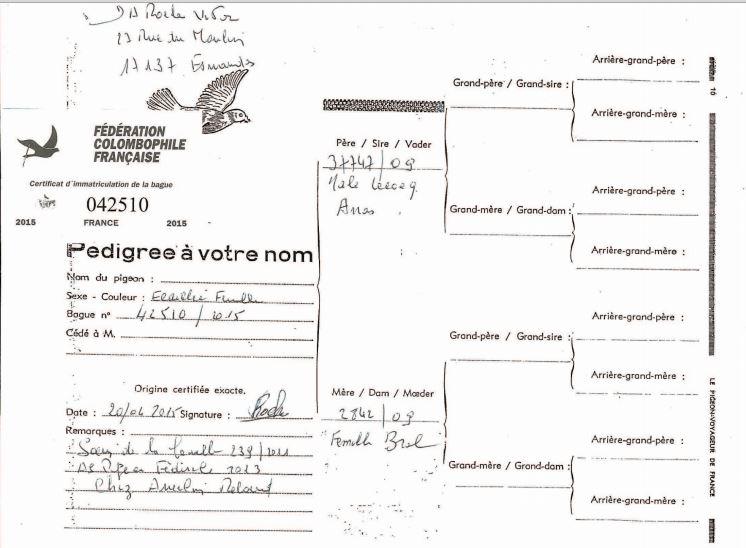 Rocke
23 Rue du Moulin
17137 Esnandes
FÉDÉRATION
COLOMBOPHILE
FRANÇAISE
Certificat d'immatriculation de la bague
042510
2015 FRANCE 2015
Pedigree à votre nom
Nom du pigeon :
Sexe - Couleur : Ecaillée Femelle
Bague n° 42510 / 2015
Cédé à M.
Origine certifiée exacte.
Date : 20/04 2015 Signature :
Remarques :
Sœur de la femelle 239/2011
As Pigeon Fédérale 2013
Chez
Père / Sire / Vader
37747/09
Male Leceq
Mère / Dam / Mœder
2842/09
Femelle
Grand-père / Grand-sire :
Grand-mère / Grand-dam :
Grand-père / Grand-sire :
Grand-mère / Grand-dam :
Arrière-grand-père :
Arrière-grand-mère :
Arrière-grand-père :
Arrière-grand-mère :
Arrière-grand-père :
Arrière-grand-mère :
Arrière-grand-père :
Arrière-grand-mère :
10
LE PIGEON-VOYAGEUR DE FRANCE